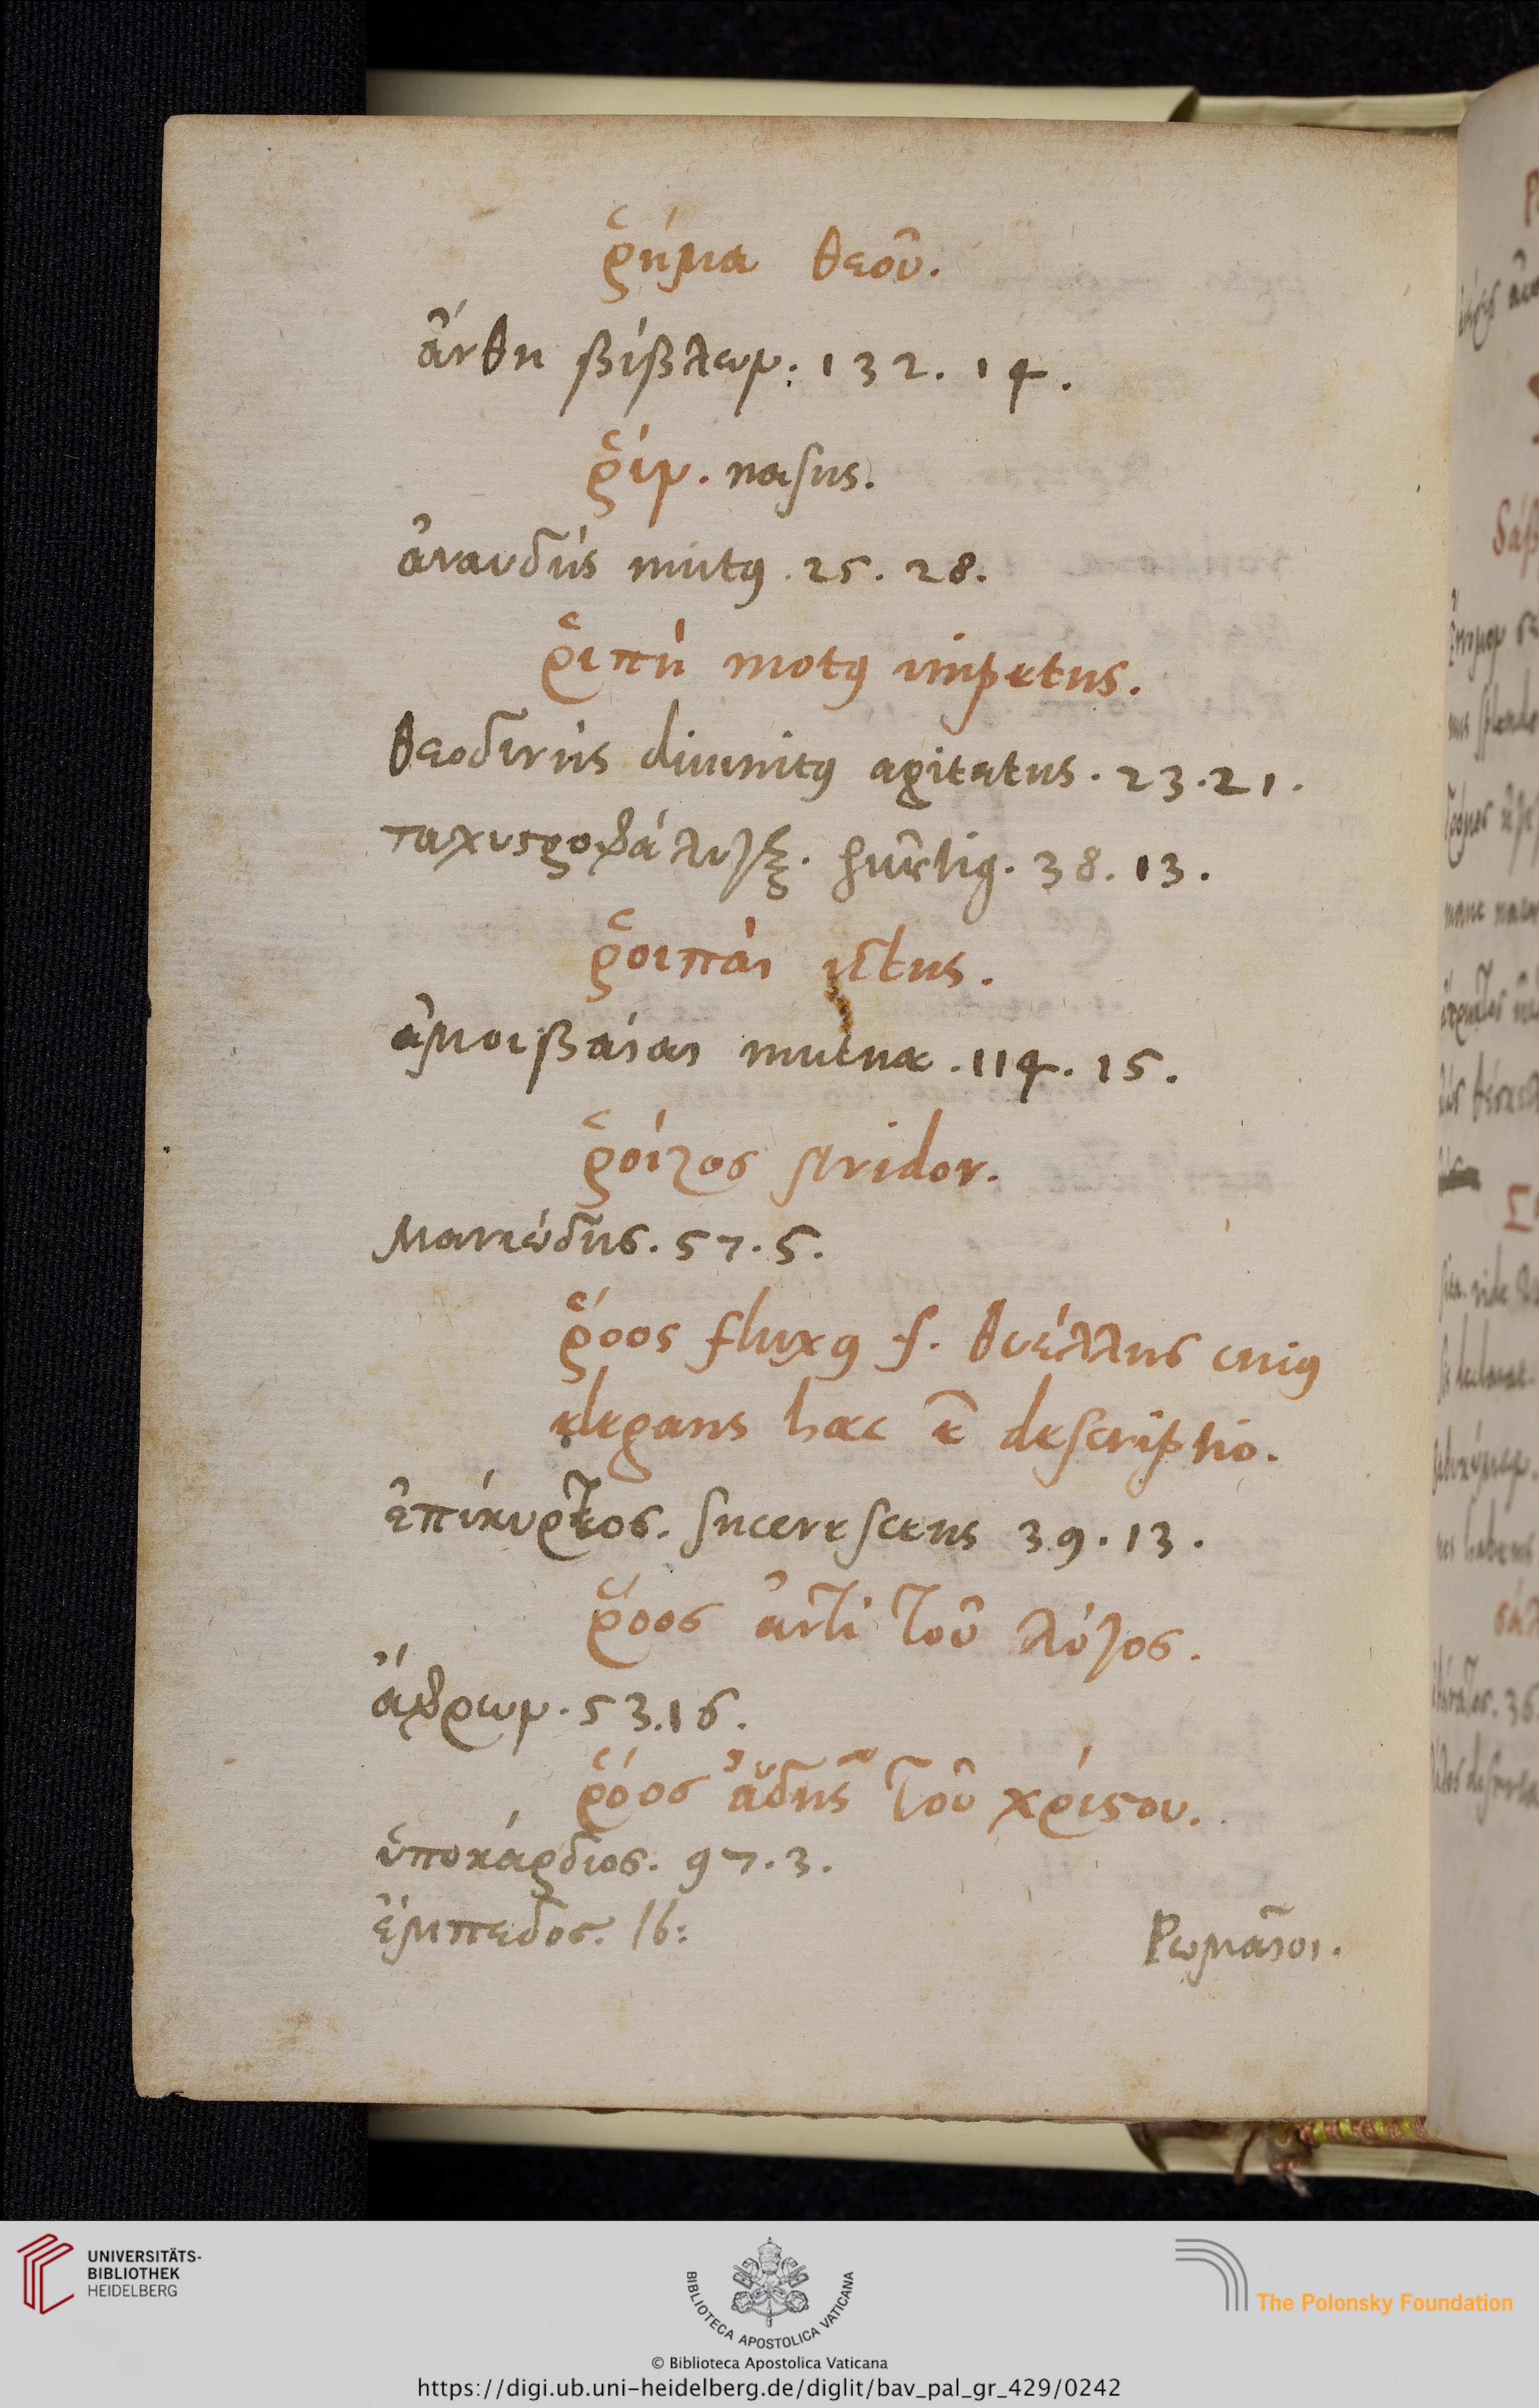 ῥήμα θεοῦ.
ἄνθη βίβλων. 132. 14.
ῥίν. nasus.
ἀναυδής mutus. 25. 28.
ῥιπή motus impetus.
θεοδινής divinitus agitatus. 23. 21.
ταχυστροφάλιγξ. hurtig. 38. 13.
ῥοιπαὶ ictus.
ἀμοιβαίαι mutuae. 114. 15.
ῥοίζος stridor.
μανιώδης. 57. 5.
ῥόος fluxus s. θυέλλης cuius
elegans haec ē descriptio.
ἐπίκυρτος. 39. 13.
ῥόος ἀντὶ τοῦ λόγος.
ἄβρων. 53. 16.
ῥόος τοῦ χρίστου.
ὑποκάρδιος. 97. 3.
ἔμπεδος. Ib:
Ρωμαῖοι.
UNIVERSITÄTS-
BIBLIOTHEK
HEIDELBERG
BIBLIOTECA APOSTOLICA VATICANA
The Polonsky Foundation
© Biblioteca Apostolica Vaticana
https://digi.ub.uni-heidelberg.de/diglit/bav_pal_gr_429/0242